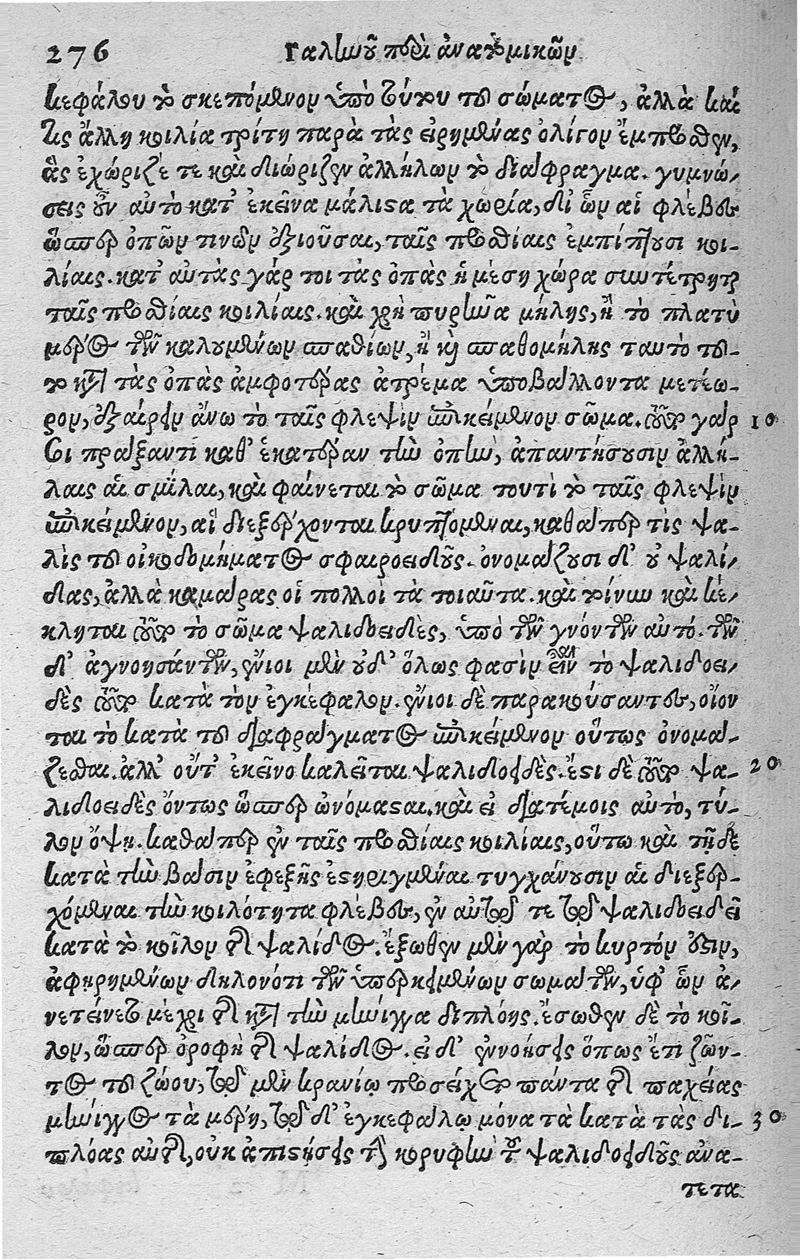 276 Γαληνοῦ περὶ ἀνατομικῶν
κεφάλου τὸ σκεπόμενον ὑπὸ τούτου τοῦ σώματος, ἀλλὰ καί
τις ἄλλη κοιλία τρίτη παρὰ τὰς εἰρημένας ὀλίγον ἔμπροσθεν,
ἃς ἐχώριζέ τε καὶ διώριζεν ἀλλήλων τὸ διάφραγμα. γυμνώ-
σεις οὖν αὐτὸ κατ' ἐκεῖνα μάλιστα τὰ χωρία, δι' ὧν αἱ φλέβες
ὥσπερ ὀπῶν τινῶν ἐξιοῦσαι, ταῖς προσθίαις ἐμπίπτουσι κοι-
λίαις. κατ' αὐτὰς γάρ τοι τὰς ὀπὰς ἡ μέση χώρα συντέτρηται
ταῖς προσθίαις κοιλίαις. καὶ χρὴ πυρῆνα μήλης, ἢ τὸ πλατὺ
μέρος τῶν καλουμένων σπαθίων, ἢ καὶ σπαθομήλης ταυτὸ τοῦ-
το κατὰ τὰς ὀπὰς ἀμφοτέρας ἀτρέμα ὑποβάλλοντα μετέω-
ρον, ἐξαίρειν ἄνω τὸ ταῖς φλεψὶν ἐπικείμενον σῶμα. οὕτω γάρ 10
σοι πράξαντι καθ' ἑκατέραν τὴν ὀπὴν, ἀπαντήσουσιν ἀλλή-
λαις αἱ σμίλαι, καὶ φαίνεται τὸ σῶμα τουτὶ τὸ ταῖς φλεψὶν
ἐπικείμενον, αἳ διεξέρχονται κρυπτόμεναι, καθάπερ τις ψα-
λὶς τοῦ οἰκοδομήματος σφαιροειδοῦς. ὀνομάζουσι δ' οὐ ψαλί-
δας, ἀλλὰ καμάρας οἱ πολλοὶ τὰ τοιαῦτα. καὶ τοίνυν καὶ κέ-
κληται οὕτω τὸ σῶμα ψαλιδοειδὲς, ὑπὸ τῶν γνόντων αὐτό. τῶν
δ' ἀγνοησάντων, ἔνιοι μὲν οὐδ' ὅλως φασὶν εἶναι τὸ ψαλιδοει-
δὲς οὕτω κατὰ τὸν ἐγκέφαλον. ἔνιοι δὲ παρακούσαντες, οἴον
ται τὸ κατὰ τοῦ διαφράγματος ἐπικείμενον οὕτως ὀνομά-
ζεσθαι. ἀλλ' οὔτ' ἐκεῖνο καλεῖται ψαλιδοειδὲς. ἔστι δὲ οὕτω ψα- 20
λιδοειδὲς ὄντως ὥσπερ ὠνόμασται. καὶ εἰ διατέμοις αὐτὸ, τύ-
λον ὄψῃ. καθάπερ ἐν ταῖς προσθίαις κοιλίαις, οὕτω καὶ τῇδε
κατὰ τὴν βάσιν ἐφεξῆς ἐστηριγμέναι τυγχάνουσιν αἱ διεξερ-
χόμεναι τὴν κοιλότητα φλέβες, ἐν αὐτῷ τε τῷ ψαλιδοειδεῖ
κατὰ τὸ κοῖλον τῆς ψαλίδος. ἔξωθεν μὲν γὰρ τὸ κυρτόν ἐστιν,
ἀφῃρημένων δηλονότι τῶν ὑπερκειμένων σωμάτων, ὑφ' ὧν ἀ-
νετείνετο μέχρι τῆς κατὰ τὴν μήνιγγα διπλόης. ἔσωθεν δὲ τὸ κοῖ-
λον, ὥσπερ ὀροφὴ τῆς ψαλίδος. εἰ δ' ἐννοήσεις ὅπως ἔτι ζῶν-
τος τοῦ ζώου, τῷ μὲν κρανίῳ προσείχετο πάντα τῆς παχείας
μήνιγγος τὰ μέρη, τῷ δ' ἐγκεφάλῳ μόνα τὰ κατὰ τὰς δι- 30
πλόας αὐτῆς, οὐκ ἀπιστήσεις τὴν κορυφὴν τοῦ ψαλιδοειδοῦς ἀνα-
τετα